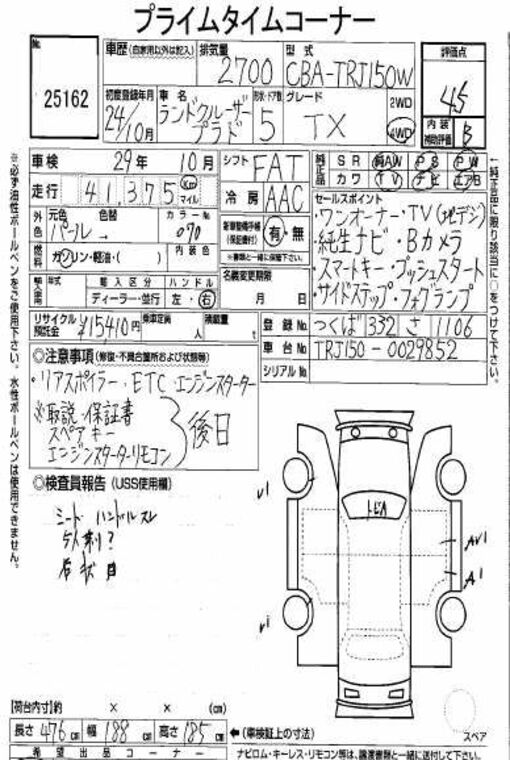 プライムタイムコーナー
No.
25162
車歴 (自家用以外は記入)
排気量
2700
型式
CBA-TRJ150W
評価点
45
初度登録年月
24/10月
車名
ランドクルーザー
プラド
形状・ドア数
5
グレード
TX
2WD
4WD
内装
補助評価
B
車検 29年 10月
シフト FAT
純正品 SR 純AW PS PW
カワ TV ナビ エアB
走行 41,375 Km マイル
冷房 AAC
セールスポイント
・ワンオーナー・TV(地デジ)
・純生ナビ・Bカメラ
・スマートキー・プッシュスタート
・サイドステップ・フォグランプ
外色 元色 色替 カラーNo
パール → 070
新車整備手帳
(保証書付) 有・無
※書類と一緒に保管下さい。
燃料 ガソリン・軽油・( ) 内装色
名義変更期限
月 日
輸入車 年式 輸入区分 ハンドル
ディーラー・並行 左・右
リサイクル
預託金 ¥15410円
乗車定員 人
積載量 t
登録No. つくば 332 さ 1106
車台No. TRJ150-0029852
シリアルNo.
◎注意事項 (修復・不具合箇所および状態等)
・リアスポイラー・ETC・エンジンスターター
※取説・保証書
スペアキー
エンジンスターターリモコン
後日
◎検査員報告 (USS使用欄)
シート ハンドルスレ
v1
vi
AV1
A1
トビA
スペア
【荷台内寸】約 × × (cm)
長さ 476 cm 幅 188 cm 高さ 185 cm
←(車検証上の寸法)
希望出品コーナー
ナビロム・キーレス・リモコン等は、譲渡書類と一緒に送付して下さい。
※必ず油性ボールペンをご使用下さい。水性ボールペンは使用できません。
←純正品に限り該当に○をつけて下さい。